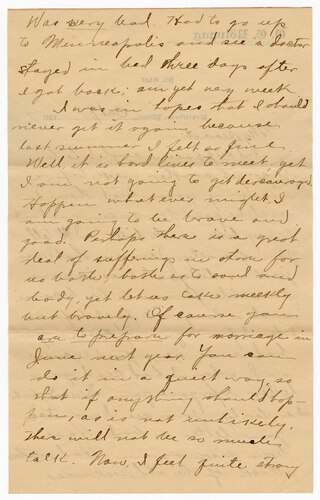 Was very bad. Had to go up
to Minneapolis and see a doctor
stayed in bed three days after
I got back, am yet very weak
I was in hopes that I should
never get it again, because
last summer I felt so fine.
Well it is hard lines to meet, yet
I am not going to get discouraged.
Happen what ever might, I
am going to be brave and
good. Perhaps there is a great
deal of sufferings in store for
us both both as to soul and
body, yet let us take meekly
but bravely. Of course you
are to prepare for marriage in
June next year. You can
do it in a quiet way, so
that if anything should hap-
pen, as is not unlikely,
there will not be so much
talk. Now, I feel quite strong